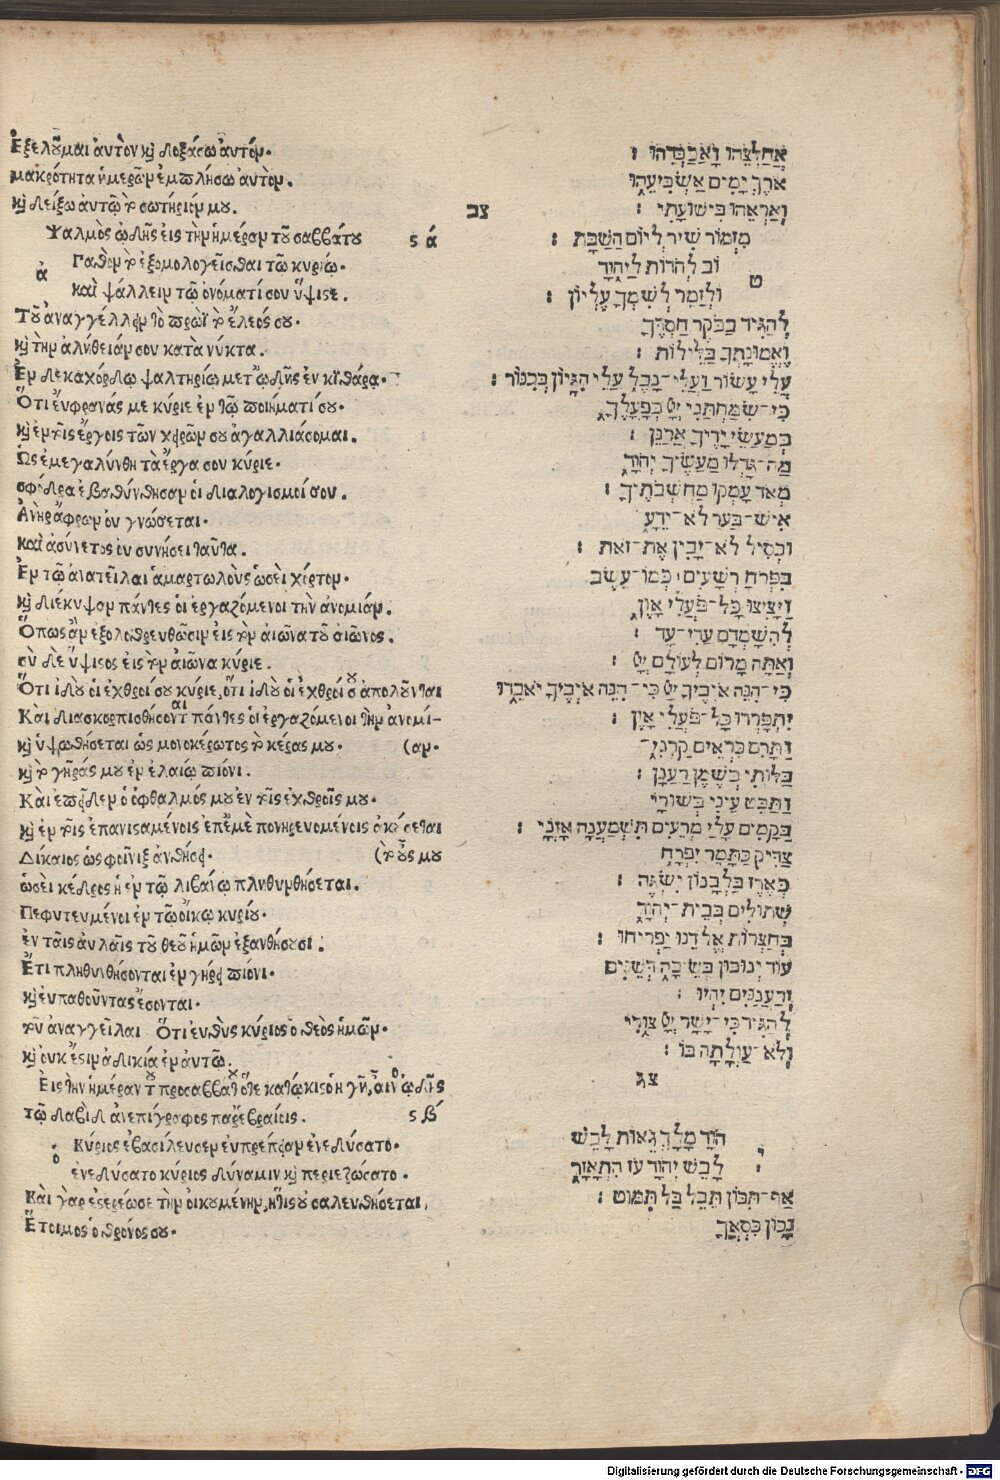 Ἐξελοῦμαι ἀυτὸν κὶ δοξάσω ἀυτόν.
μακρότητα ἡμερῶν ἐμπλήσω ἀυτὸν.
κὶ δείξω αυτῶ τὸ σωτηριόν μου.
Ψαλμὸς ὠδῆς εἰς τὴν ἡμέραν τοῦ σαββάτου ϛ ά
ἀ Γαθὸν τὸ ἐξομολογεῖσθαι τῶ κυρίω.
καὶ ψάλλειν τῶ ὀνόματί σου ὕψιςε.
Τοῦ ἀναγγέλλειν τὸ πρωῒ τὸ ἔλεός σου.
κὶ τὴν ἀλήθειάν σου κατὰ νύκτα.
Ἐν δεκαχόρδω ψαλτηρίω μετ ὠδῆς ἐν κιθάρα.
Ὅτι ἔυφρανάς με κύριε ἐν τῶ ποιήματί σου.
κὶ ἐν τοῖς ἔργοις τῶν χειρῶν σου ἀγαλλιάσομαι.
Ὡς ἐμεγαλύνθη τὰ ἔργα σου κύριε.
σφόδρα ἐβαθύνθησαν οἱ διαλογισμοί σου.
Ἀνὴρ ἄφρων ὀυ γνώσεται.
καὶ ἀσύνετος ὀυ συνήσει ταῦτα.
Ἐν τῶ ἀνατεῖλαι ἁμαρτωλοὺς ὡσεὶ χόρτον.
κὶ διέκυψον πάντες ὁι ἐργαζόμενοι τὴν ἀνομίαν.
Ὅπως ἂν ἐξολοθρευθῶσιν εἰς τὸν αἰῶνα τοῦ αἰῶνος.
σὺ δὲ ὕψιςος εἰς τὸν αἰῶνα κύριε.
Ὅτι ἰδοὺ ὁι ἐχθροί σου κύριε, ὅτι ἰδοὺ ὁι ἐχθροί σου ἀπολοῦνται
Καὶ διασκορπισθήσονται πάντες ὁι ἐργαζόμενοι τὴν ἀνομί-
κὶ ὑψωθήσεται ὡς μονοκέρωτος τὸ κέρας μου. (αν.
κὶ τὸ γῆράς μου ἐν ἐλαίω πίονι.
Καὶ ἐπεῖδεν ὁ ὀφθαλμός μου ἐν τοῖς ἐχθροῖς μου.
κὶ ἐν τοῖς ἐπανισαμένοις ἐπ ἐμὲ πονηρευομένοις ἀκούσεται
Δίκαιος ὡς φοῖνιξ ἀνθήσει. (τὸ οὖς μου
ὡσεὶ κέδρος ἡ ἐν τῶ λιβάνω πληθυνθήσεται.
Πεφυτευμένοι ἐν τῶ ὄικω κυρίου.
ἐν ταῖς ἀυλαῖς τοῦ θεοῦ ἡμῶν ἐξανθήσουσι.
Ἔτι πληθυνθήσονται ἐν γήρει πίονι.
κὶ ἐυπαθοῦντας ἔσονται.
τοῦ ἀναγγεῖλαι Ὅτι ἐυθὺς κύριος ὁ θεὸς ἡμῶν.
κὶ ὀυκ ἔςιν ἀδικία ἐν ἀυτῶ.
Εἰς τὴν ἡμέραν τοῦ προσαββάτου ὅτε κατώκισο ἡ γῆ, αἶνος ὠδῆς
τῶ δαβὶδ ἀνεπίγραφος παρ ἑβραίοις. ϛ β́
ὁ Κύριος ἐβασίλευσεν ἐυπρέπειαν ἐνεδύσατο.
ἐνεδύσατο κύριος δύναμιν κὶ περιεζώσατο.
Καὶ γὰρ ἐςερέωσε τὴν ὀικουμένην, ἥτις ὀυ σαλευθήσεται.
Ἕτοιμος ὁ θρόνος σου.
אֲחַלְּצֵהוּ וַאֲכַבְּדֵהוּ :
אֹרֶךְ יָמִים אַשְׂבִּיעֵהוּ
וְאַרְאֵהוּ בִּישׁוּעָתִי :
צב
מִזְמוֹר שִׁיר לְיוֹם הַשַּׁבָּת :
ט וֹב לְהֹדוֹת לַיהוָֹד
וּלְזַמֵּר לְשִׁמְךָ עֶלְיוֹן :
לְהַגִּיד בַּבֹּקֶר חַסְדֶּךָ
וֶאֱמוּנָתְךָ בַּלֵּילוֹת :
עֲלֵי עָשׂוֹר וַעֲלֵי־נָבֶל עֲלֵי הִגָּיוֹן בְּכִנּוֹר :
כִּי־שִׂמַּחְתַּנִי יְיָ בְּפָעֳלֶךָ
בְּמַעֲשֵׂי יָדֶיךָ אֲרַנֵּן :
מַה־גָּדְלוּ מַעֲשֶׂיךָ יְהוָֹד
מְאֹד עָמְקוּ מַחְשְׁבֹתֶיךָ :
אִישׁ־בַּעַר לֹא־יֵדָע
וּכְסִיל לֹא־יָבִין אֶת־זֹאת :
בִּפְרֹחַ רְשָׁעִים כְּמוֹ־עֵשֶׂב
וַיָּצִיצוּ כָּל־פֹּעֲלֵי אָוֶן
לְהִשָּׁמְדָם עֲדֵי־עַד :
וְאַתָּה מָרוֹם לְעוֹלָם יְיָ :
כִּי־הִנֵּה אֹיְבֶיךָ יְיָ כִּי־הִנֵּה אֹיְבֶיךָ יֹאבֵדוּ
יִתְפָּרְדוּ כָּל־פֹּעֲלֵי אָוֶן :
וַתָּרֶם כִּרְאֵים קַרְנִי־
בַּלּוֹתִי בְּשֶׁמֶן רַעֲנָן :
וַתַּבֵּט עֵינִי בְּשׁוּרָי
בַּקָּמִים עָלַי מְרֵעִים תִּשְׁמַעְנָה אָזְנָי :
צַדִּיק כַּתָּמָר יִפְרָח
כְּאֶרֶז בַּלְּבָנוֹן יִשְׂגֶּה :
שְׁתוּלִים בְּבֵית־יְהוָֹד
בְּחַצְרוֹת אֱלֹדֵינוּ יַפְרִיחוּ :
עוֹד יְנוּבוּן בְּשֵׂיבָה דְּשֵׁנִים
וְרַעֲנַנִּים יִהְיוּ :
לְהַגִּיד כִּי־יָשָׁר יְיָ צוּרִי
וְלֹא־עַוְלָתָה בּוֹ :
צג
י הוָֹד מָלָךְ גֵּאוּת לָבֵשׁ
לָבֵשׁ יְהוָֹד עֹז הִתְאַזָּר
אַף־תִּכּוֹן תֵּבֵל בַּל תִּמּוֹט :
נָכוֹן כִּסְאֲךָ
Digitalisierung gefördert durch die Deutsche Forschungsgemeinschaft - DFG